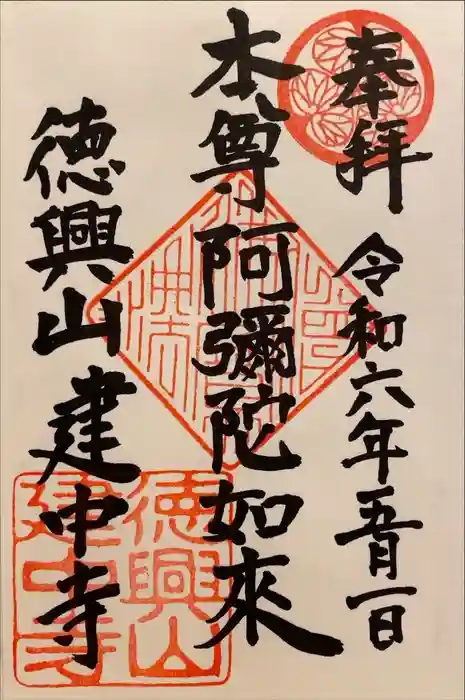 奉拝
令和六年五月一日
本尊阿彌陀如來
德興山建中寺
德興山
建中寺